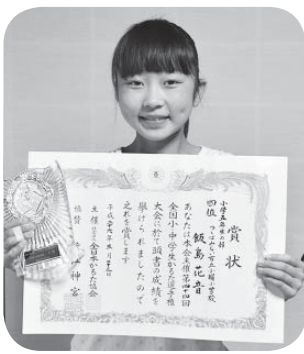 賞状
小学五年生の部
四位
飯島花音
あなたは本会主催第四十回
全国小中学生かるた選手権
大会に於て頭書の成績を
挙げられましたので
之れを賞します
平成二十六年
主催 全日本かるた協会
協賛 神宮